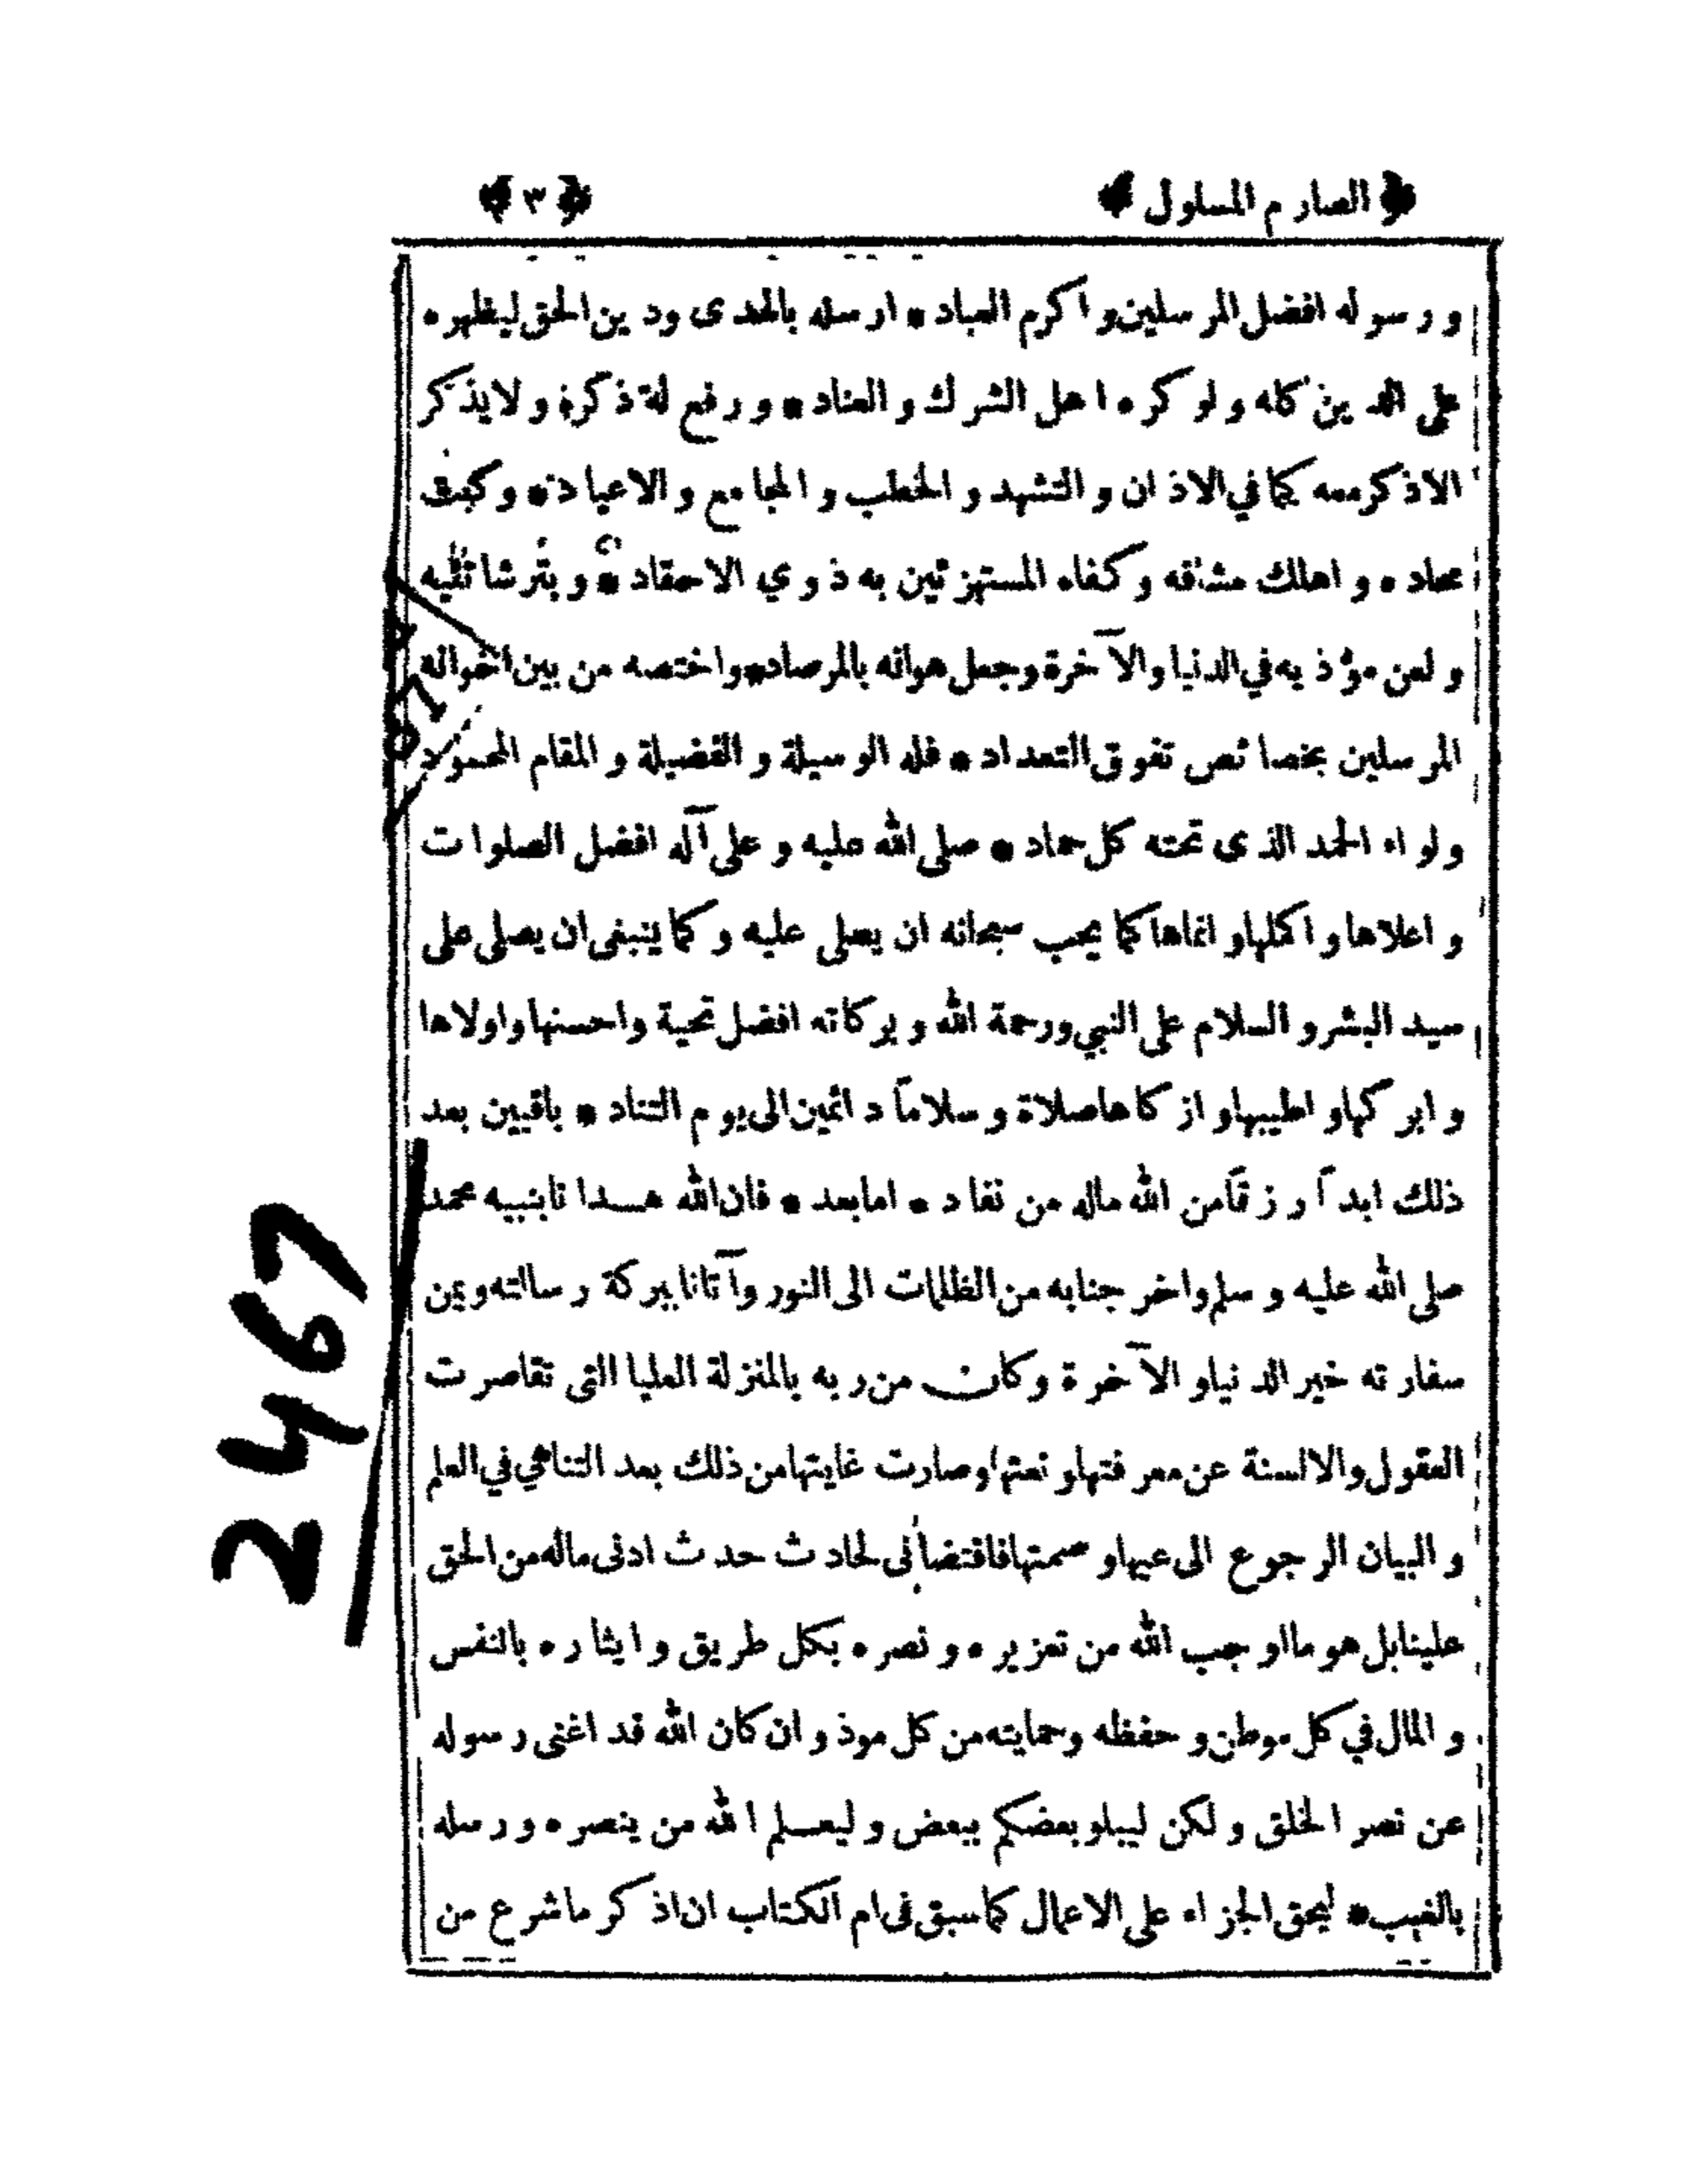 ﴿ الصارم المسلول ﴾ ﴿ ٣ ﴾
ورسوله افضل المرسلين واكرم العباد * ارسله بالهدى ودين الحق ليظهره
على الدين كله ولوكره اهل الشرك والعناد * ورفع له ذكره ولايذكر
الاذكرمعه كما في الاذان والتشهد والخطب والمجامع والاعياد * وكبت
محاده واهلك مشاقه وكفاه المستهزئين به ذوي الاحقاد * وبتر شانئيه
ولعن مؤذيه في الدنيا والآخرة وجعل هوانه بالمرصاد * واختصه من بين اخوانه
المرسلين بخصائص تفوق التعداد * فله الوسيلة والفضيلة والمقام المحمود
ولواء الحمد الذى تحته كل حماد * صلى الله عليه وعلى آله افضل الصلوات
واعلاها واكملها وانماها كما يحب سبحانه ان يصلى عليه وكما ينبغى ان يصلى على
سيد البشر والسلام على النبي ورحمة الله وبركاته افضل تحية واحسنها واولاها
وابركها واطيبها وازكاها صلاة وسلاماً دائمين الى يوم التناد * باقيين بعد
ذلك ابداً رزقاً من الله ماله من نفاد * امابعد * فان الله هدانا بنبيه محمد
صلى الله عليه وسلم واخرجنا به من الظلمات الى النور وآتانا ببركة رسالته ويمن
سفارته خير الدنيا والآخرة وكان من ربه بالمنزلة العليا التى تقاصرت
العقول والالسنة عن معرفتها ونعتها وصارت غايتها من ذلك بعد التناهي في العلم
والبيان الرجوع الى عيها وصمتها فاقتضانى لحادث حدث ادنى ماله من الحق
علينا بل هو ما اوجب الله من تعزيره ونصره بكل طريق وايثاره بالنفس
والمال في كل موطن وحفظه وحمايته من كل موذ وان كان الله قد اغنى رسوله
عن نصر الخلق ولكن ليبلو بعضكم ببعض وليعلم الله من ينصره ورسله
بالغيب * ليحق الجزاء على الاعمال كما سبق فى ام الكتاب ان اذكر ما شرع من
2467